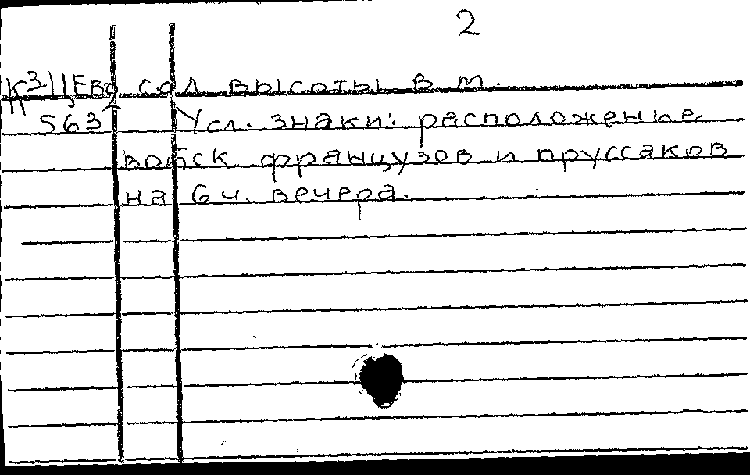 2
К 3||Ева сод высоты в м.
п 563
Усл. знаки: расположение
войск французов и пруссаков
на 6 ч. вечера.